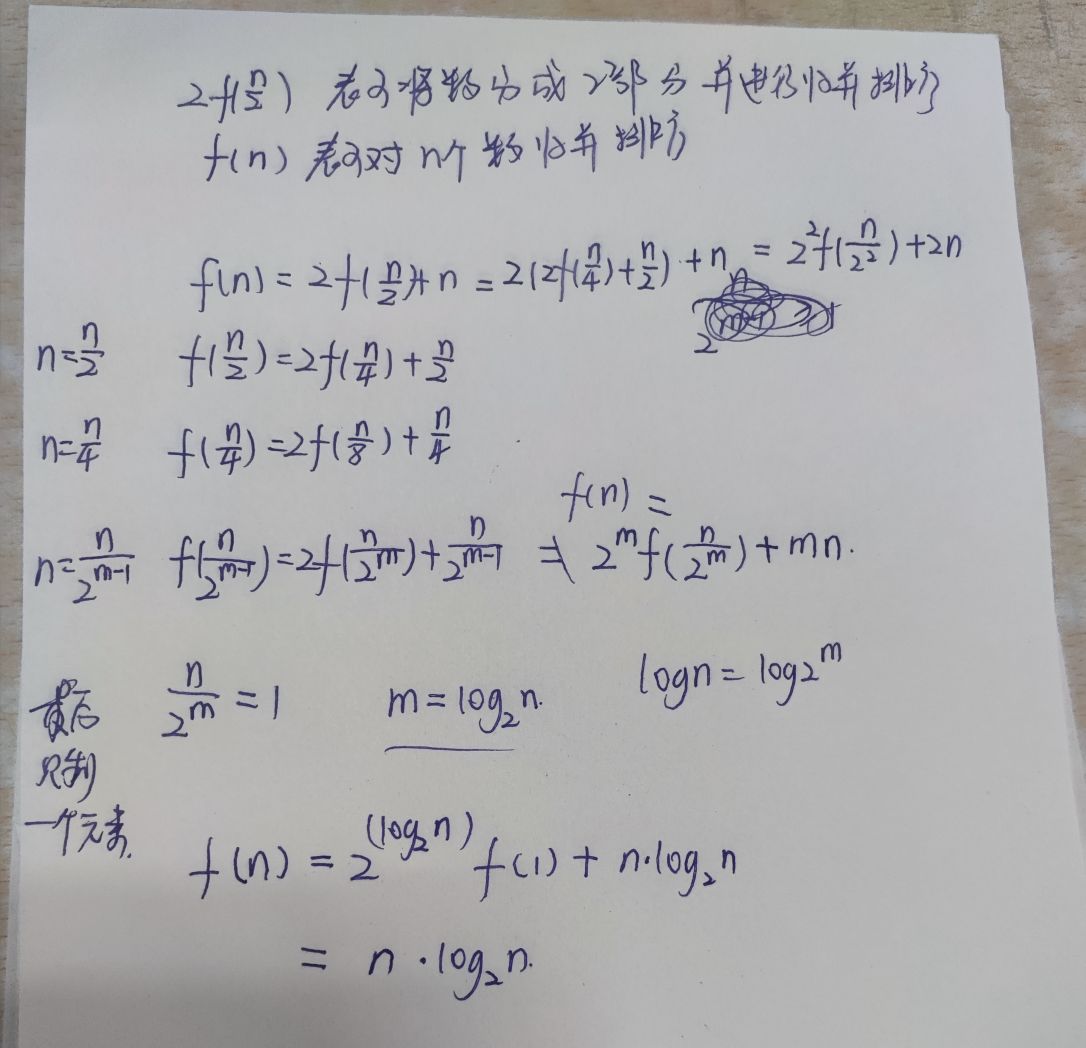 2f(n/2) 表示将数分成2部分并进行归并排序
f(n) 表示对n个数归并排序
f(n) = 2f(n/2)+n = 2(2f(n/4)+n/2)+n = 2²f(n/2²)+2n
n=n/2 f(n/2)=2f(n/4)+n/2
n=n/4 f(n/4)=2f(n/8)+n/4
f(n) =
n=n/2^(m-1) f(n/2^(m-1))=2f(n/2^m)+n/2^(m-1) ⇒ 2^m f(n/2^m)+mn.
最后 n/2^m = 1 m=log₂n. logn=log2^m
只剩
一个元素.
f(n) = 2^(log₂n) f(1) + n·log₂n
= n·log₂n.